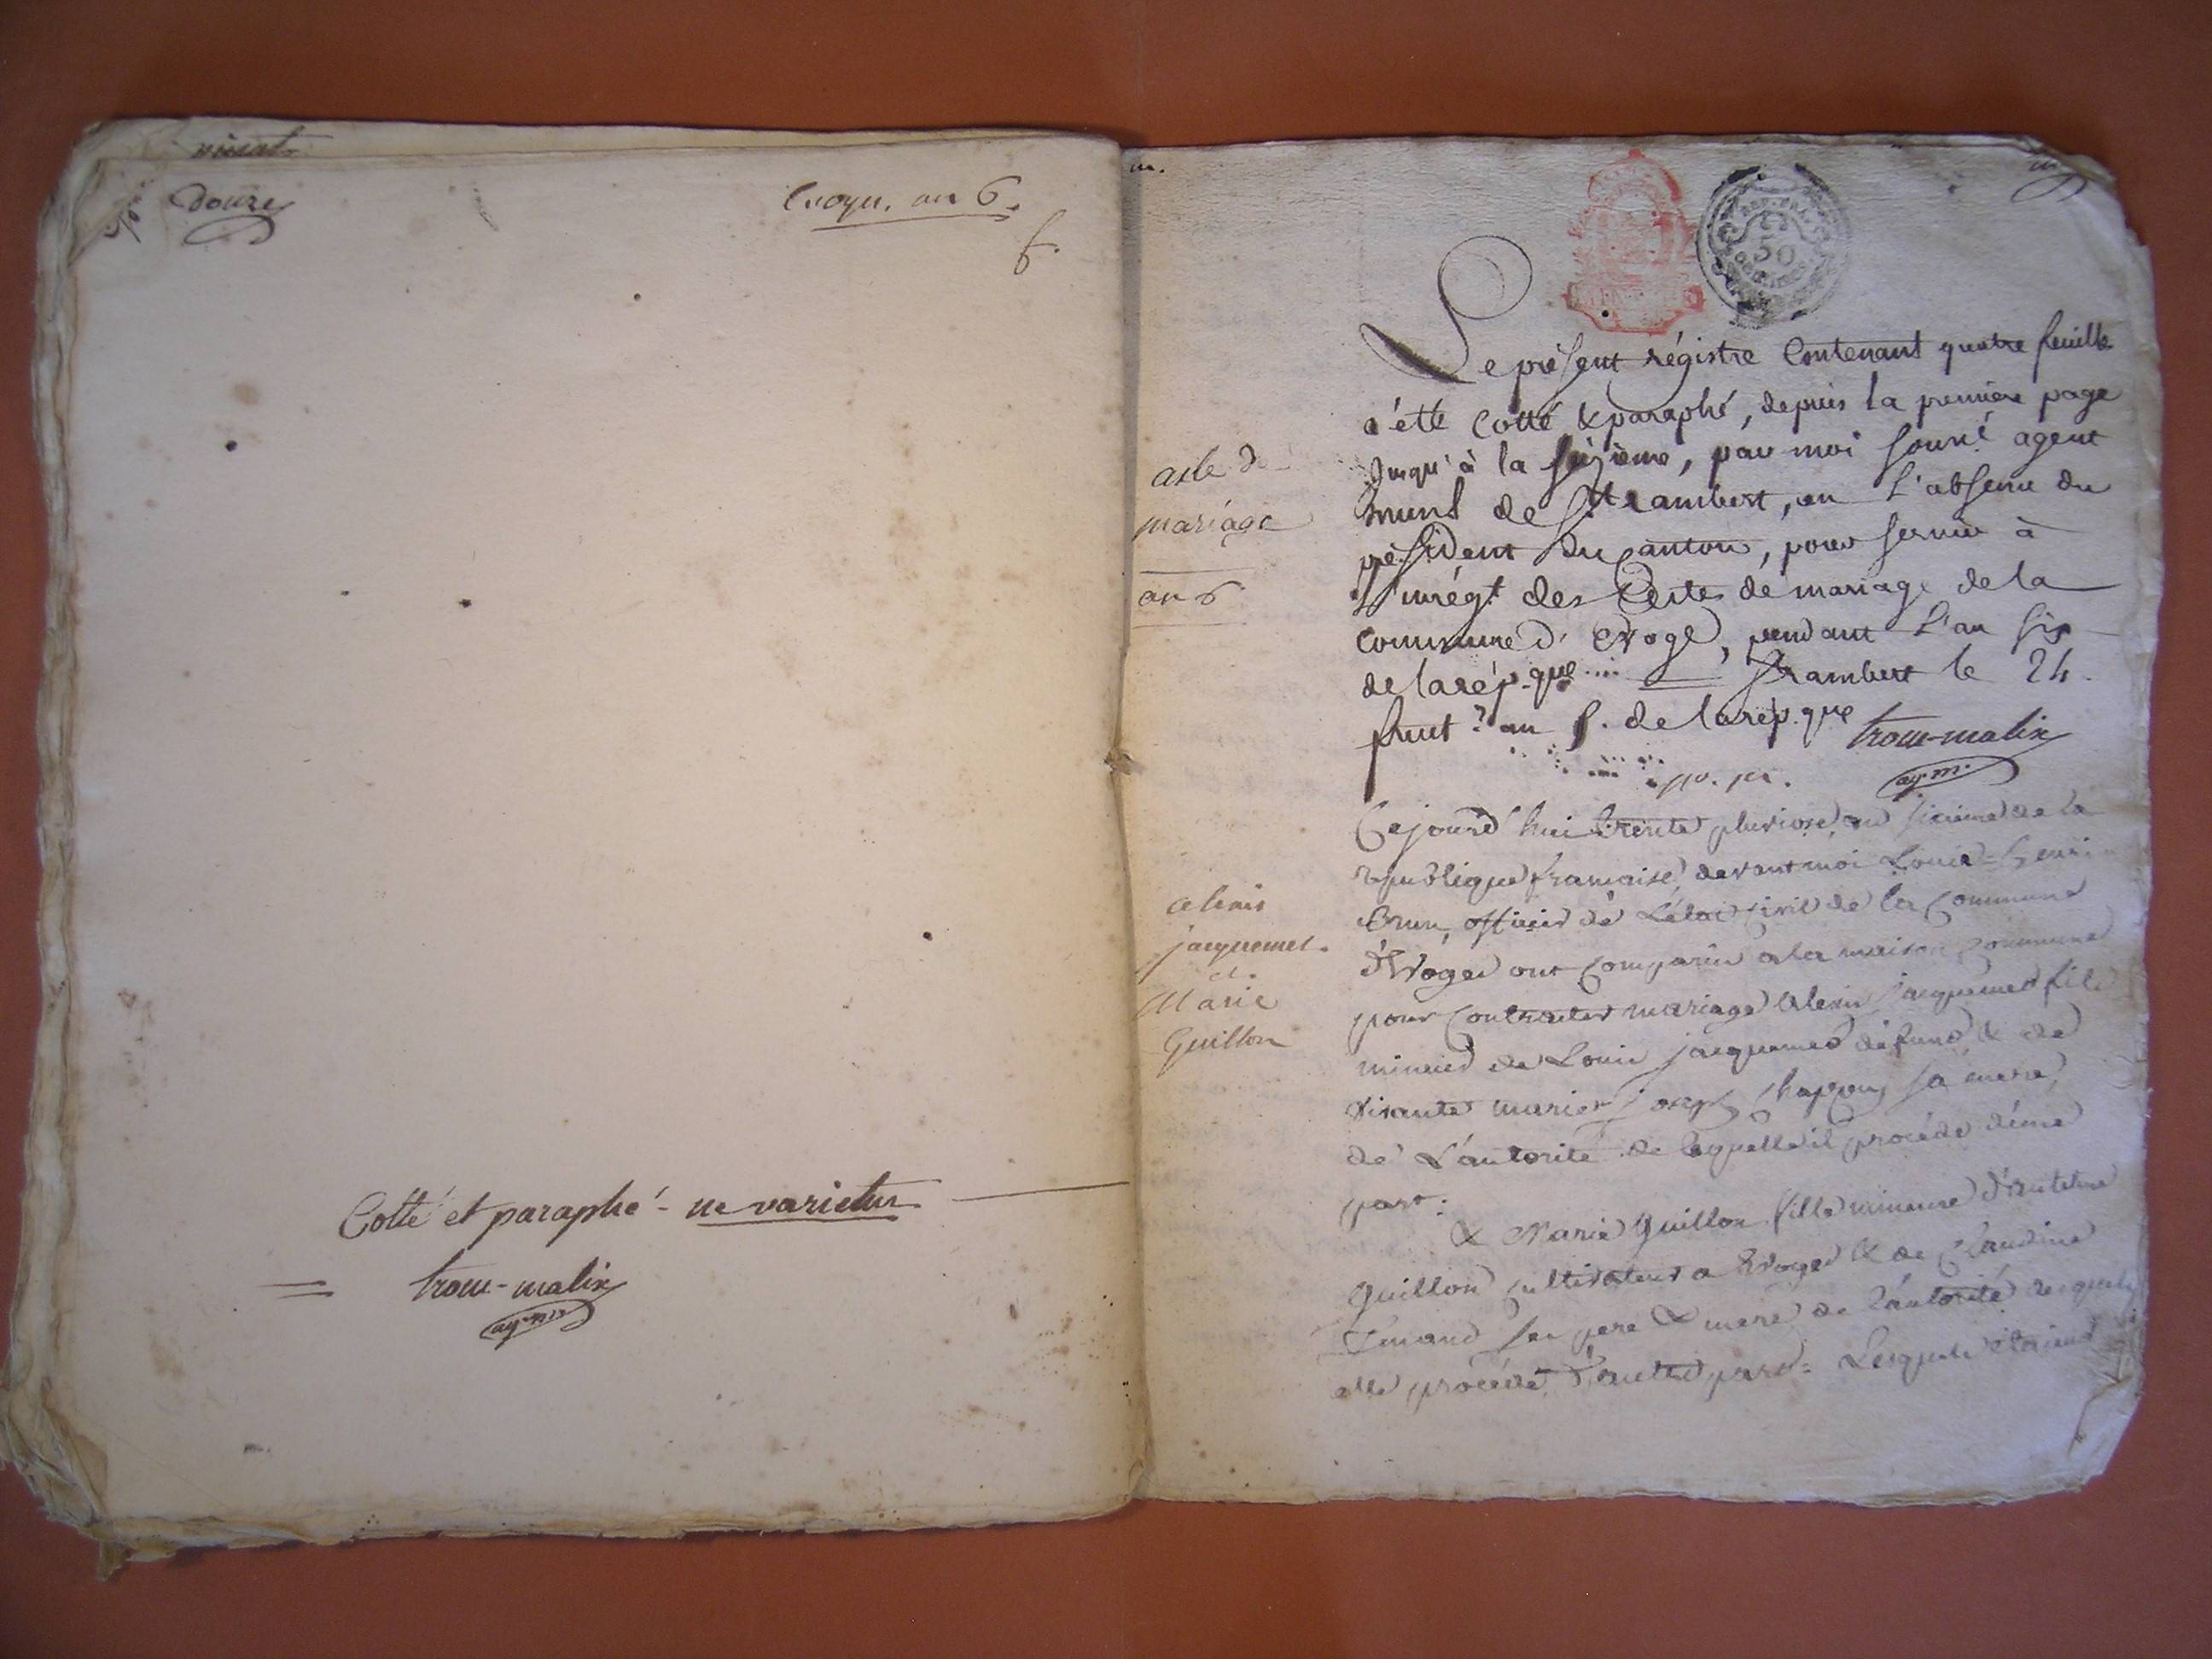 douze
Evoges. an 6.
6.
Cotté et paraphé - ne varietur
trocu-matix
ag. m.
acte de
mariage
an 6
alexis
jacquemet.
et
Marie
Guillon
REP. FRA.
50
Le présent régistre Contenant quatre feuille
a été Cotté & paraphé, depuis la premiere page
Jusqu'à la seizieme, par moi souss.é agent
munl de St. rambert, en l'absence du
président du Canton, pour servir à
l'enrégt. des Actes de mariage de la
commune d'Evoge, pendant l'an six
de la rép.que St rambert le 24.
fruct.r an 5. de la rép.que
ag. m.
Cejourd'hui trente pluviose, an sixieme de la
republique française, devant moi Louis=henri
Brun, officier de L'état civil de la Commune
d'Evoges ont comparu a la maison commune
pour contracter mariage alexis jacquemet fils
mineur de Louis jacquemet défunt & de
vivante marie joseph Chappuy sa mere,
de L'autorité de laquelle il procéde d'une
part:
& Marie Guillon fille mineure d'antelme
Guillon cultivateur a Evoges & de Claudine
ses pere & mere de L'autorité desquels
elle procéde, d'autre part= Lesquels étoient